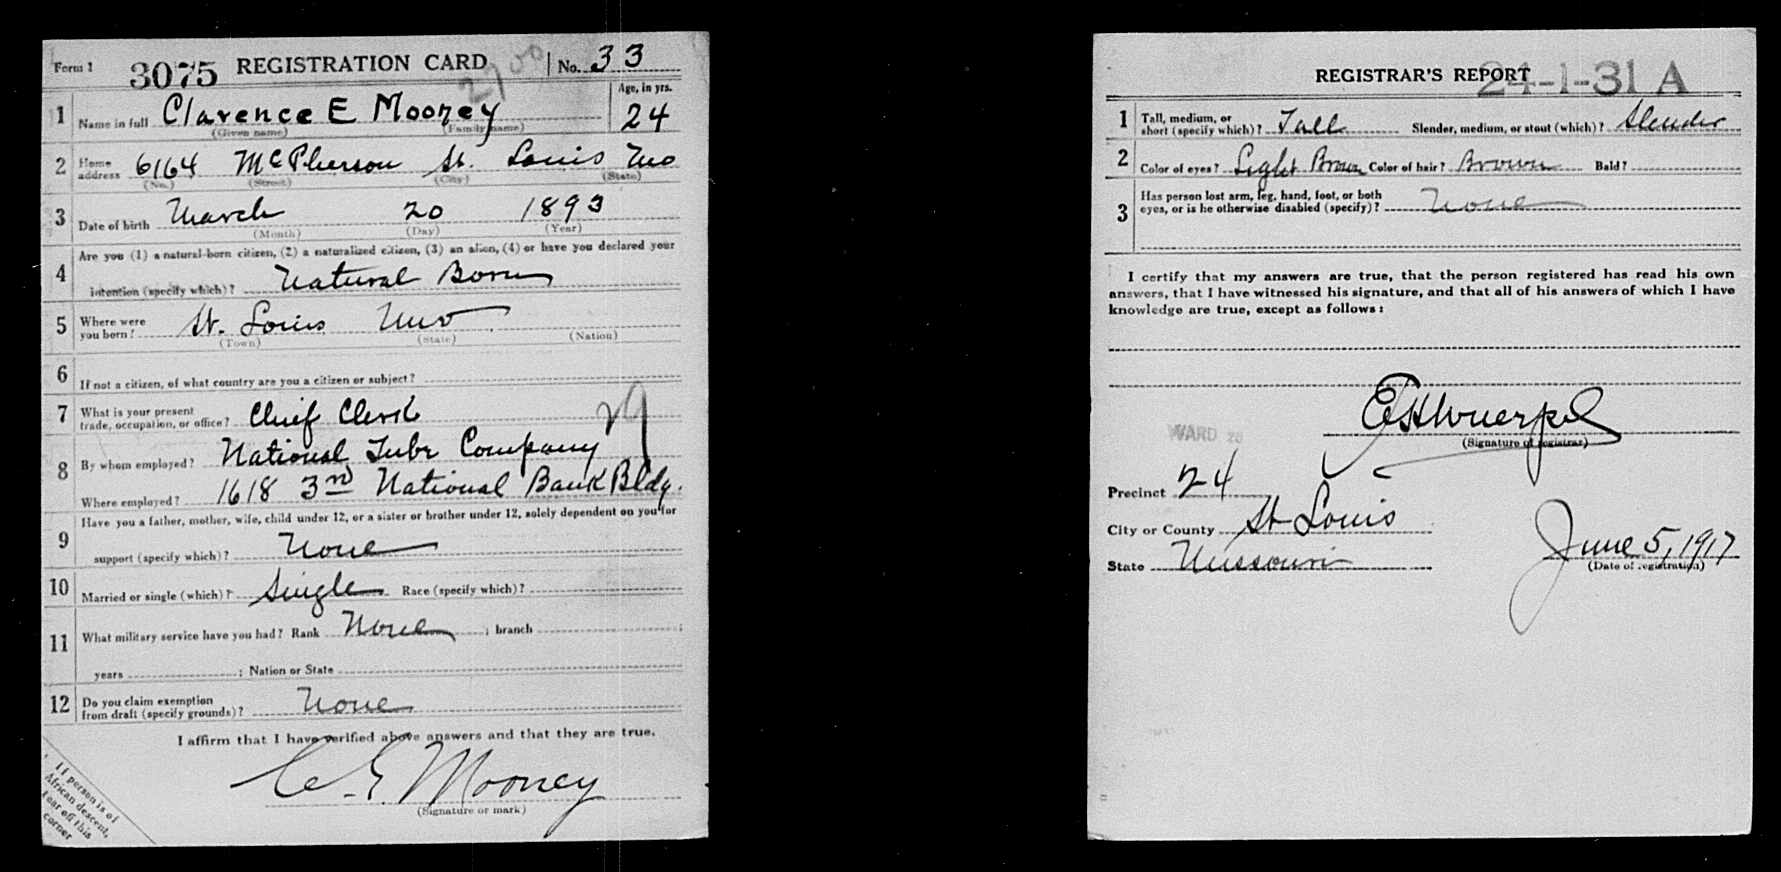 Form 1 3075 REGISTRATION CARD No. 33
2700
Age, in yrs.
1 Name in full Clarence E Mooney 24
(Given name) (Family name)
2 Home address 6164 McPherson St. Louis Mo
(No.) (Street) (City) (State)
3 Date of birth March 20 1893
(Month) (Day) (Year)
4 Are you (1) a natural-born citizen, (2) a naturalized citizen, (3) an alien, (4) or have you declared your
intention (specify which)? Natural Born
5 Where were you born? St. Louis Mo
(Town) (State) (Nation)
6 If not a citizen, of what country are you a citizen or subject?
7 What is your present
trade, occupation, or office? Chief Clerk 29
8 By whom employed? National Tube Company
Where employed? 1618 3rd National Bank Bldg.
9 Have you a father, mother, wife, child under 12, or a sister or brother under 12, solely dependent on you for
support (specify which)? None
10 Married or single (which)? Single Race (specify which)?
11 What military service have you had? Rank None ; branch ;
years ; Nation or State
12 Do you claim exemption
from draft (specify grounds)? None
I affirm that I have verified above answers and that they are true.
C. E. Mooney
(Signature or mark)
If person is of
African descent,
tear off this
corner
REGISTRAR'S REPORT 24-1-31 A
1 Tall, medium, or
short (specify which)? Tall Slender, medium, or stout (which)? Slender
2 Color of eyes? Light Brown Color of hair? Brown Bald?
3 Has person lost arm, leg, hand, foot, or both
eyes, or is he otherwise disabled (specify)? None
I certify that my answers are true, that the person registered has read his own
answers, that I have witnessed his signature, and that all of his answers of which I have
knowledge are true, except as follows:
E H Wuerpel
(Signature of registrar)
WARD 28
Precinct 24
City or County St Louis
State Missouri
June 5, 1917
(Date of registration)